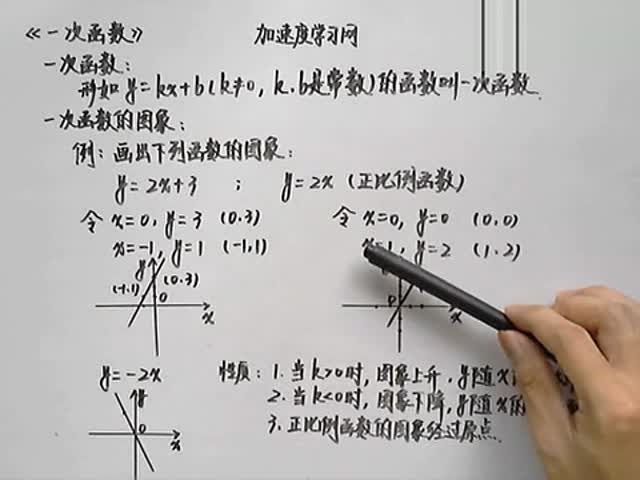 《一次函数》 加速度学习网
一次函数：
形如 y=kx+b(k≠0, k.b是常数)的函数叫一次函数.
一次函数的图象：
例：画出下列函数的图象：
y=2x+3 ； y=2x (正比例函数)
令 x=0, y=3 (0.3) 令 x=0, y=0 (0,0)
x=-1, y=1 (-1,1) x=1, y=2 (1.2)
y
(-1.1) (0.3)
0 x 0 x
y=-2x
y
0 x
性质：1. 当k>0时, 图象上升, y随x
2. 当k<0时, 图象下降, y随x的
3. 正比例函数的图象经过原点.